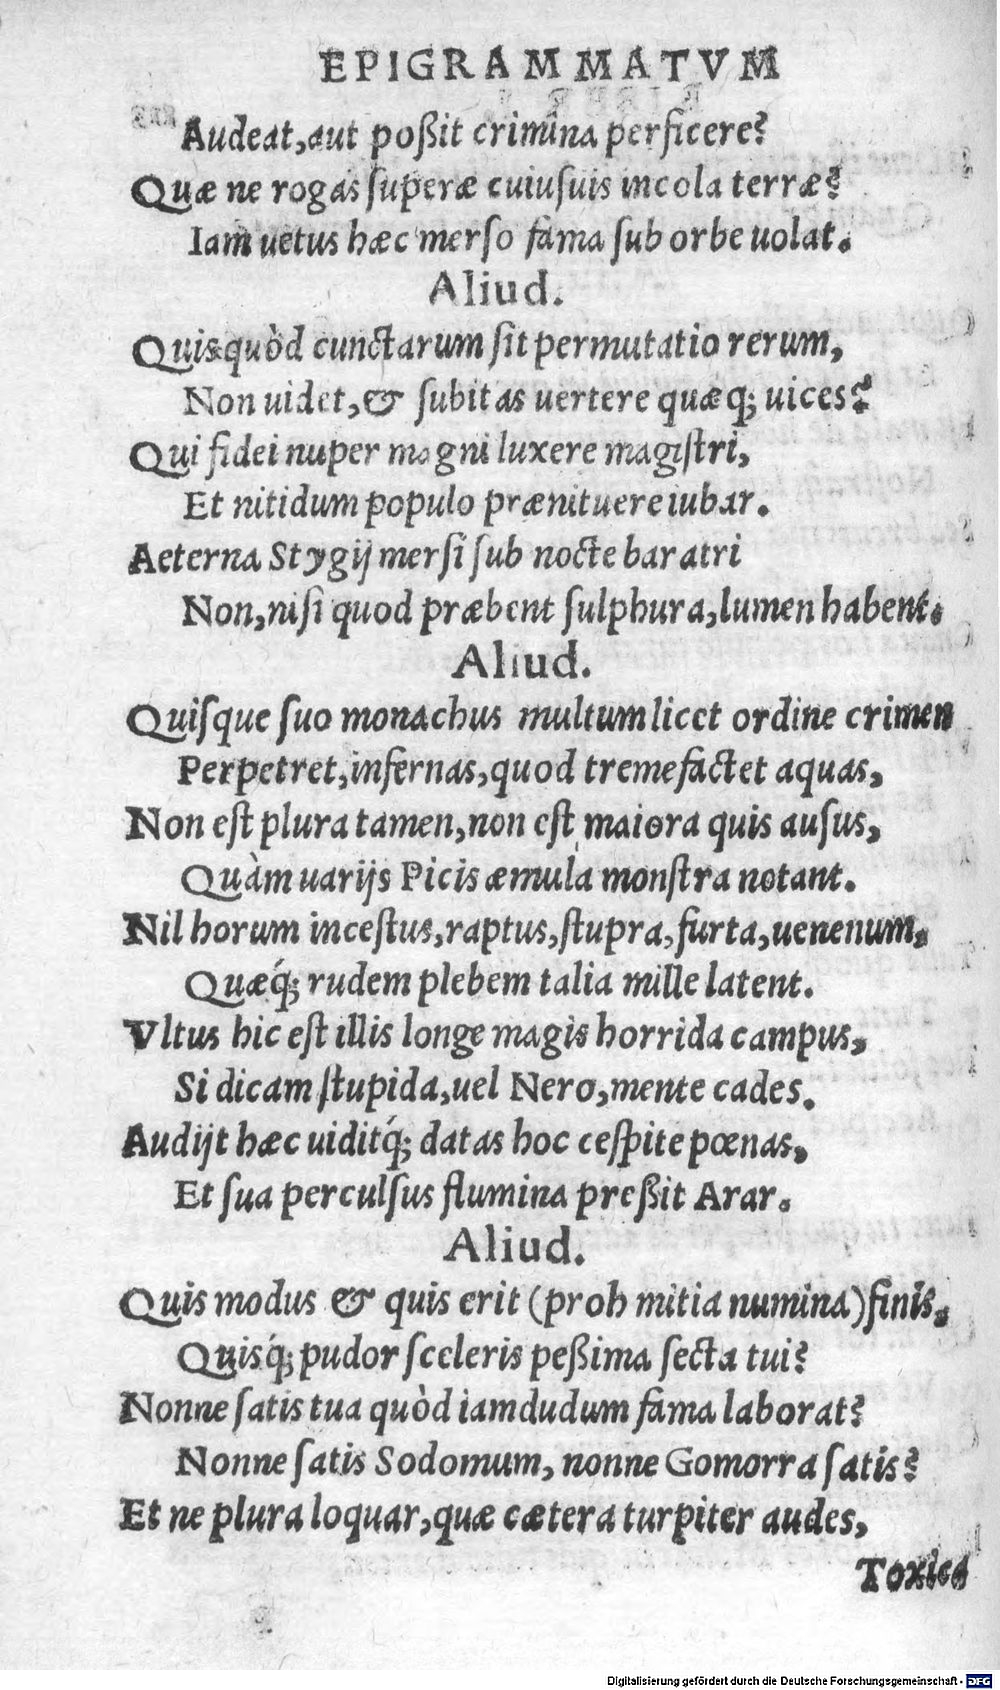 EPIGRAMMATVM
Audeat, aut poßit crimina perficere?
Quæ ne rogas ſuperæ cuiuſuis incola terræ?
Iam uetus hæc merſo fama ſub orbe uolat.
Aliud.
Quis quòd cunctarum ſit permutatio rerum,
Non uidet, & ſubitas uertere quæq; uices?
Qui fidei nuper magni luxere magiſtri,
Et nitidum populo prænituere iubar.
Aeterna Stygij merſi ſub nocte baratri
Non, niſi quod præbent ſulphura, lumen habent.
Aliud.
Quiſque ſuo monachus multum licet ordine crimen
Perpetret, infernas, quod tremefactet aquas,
Non eſt plura tamen, non eſt maiora quis auſus,
Quàm uarijs Picis æmula monſtra notant.
Nil horum inceſtus, raptus, ſtupra, furta, uenenum,
Quæq́; rudem plebem talia mille latent.
Vltus hic eſt illis longe magis horrida campus,
Si dicam ſtupida, uel Nero, mente cades.
Audijt hæc uiditq́; datas hoc ceſpite pœnas,
Et ſua perculſus flumina preßit Arar.
Aliud.
Quis modus & quis erit (proh mitia numina) finis,
Quisq́; pudor ſceleris peßima ſecta tui?
Nonne ſatis tua quòd iamdudum fama laborat?
Nonne ſatis Sodomum, nonne Gomorra ſatis?
Et ne plura loquar, quæ cætera turpiter audes,
Toxica
Digitalisierung gefördert durch die Deutsche Forschungsgemeinschaft - DFG